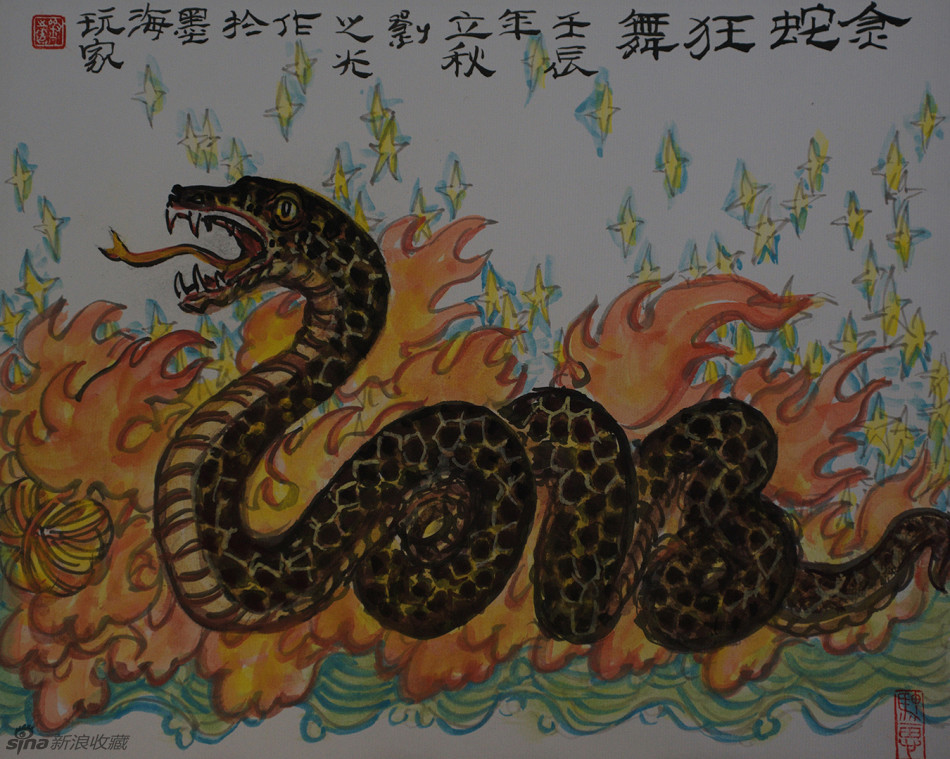 金蛇狂舞 壬辰年立秋 劉之光作扵墨海玩家
sina新浪收藏